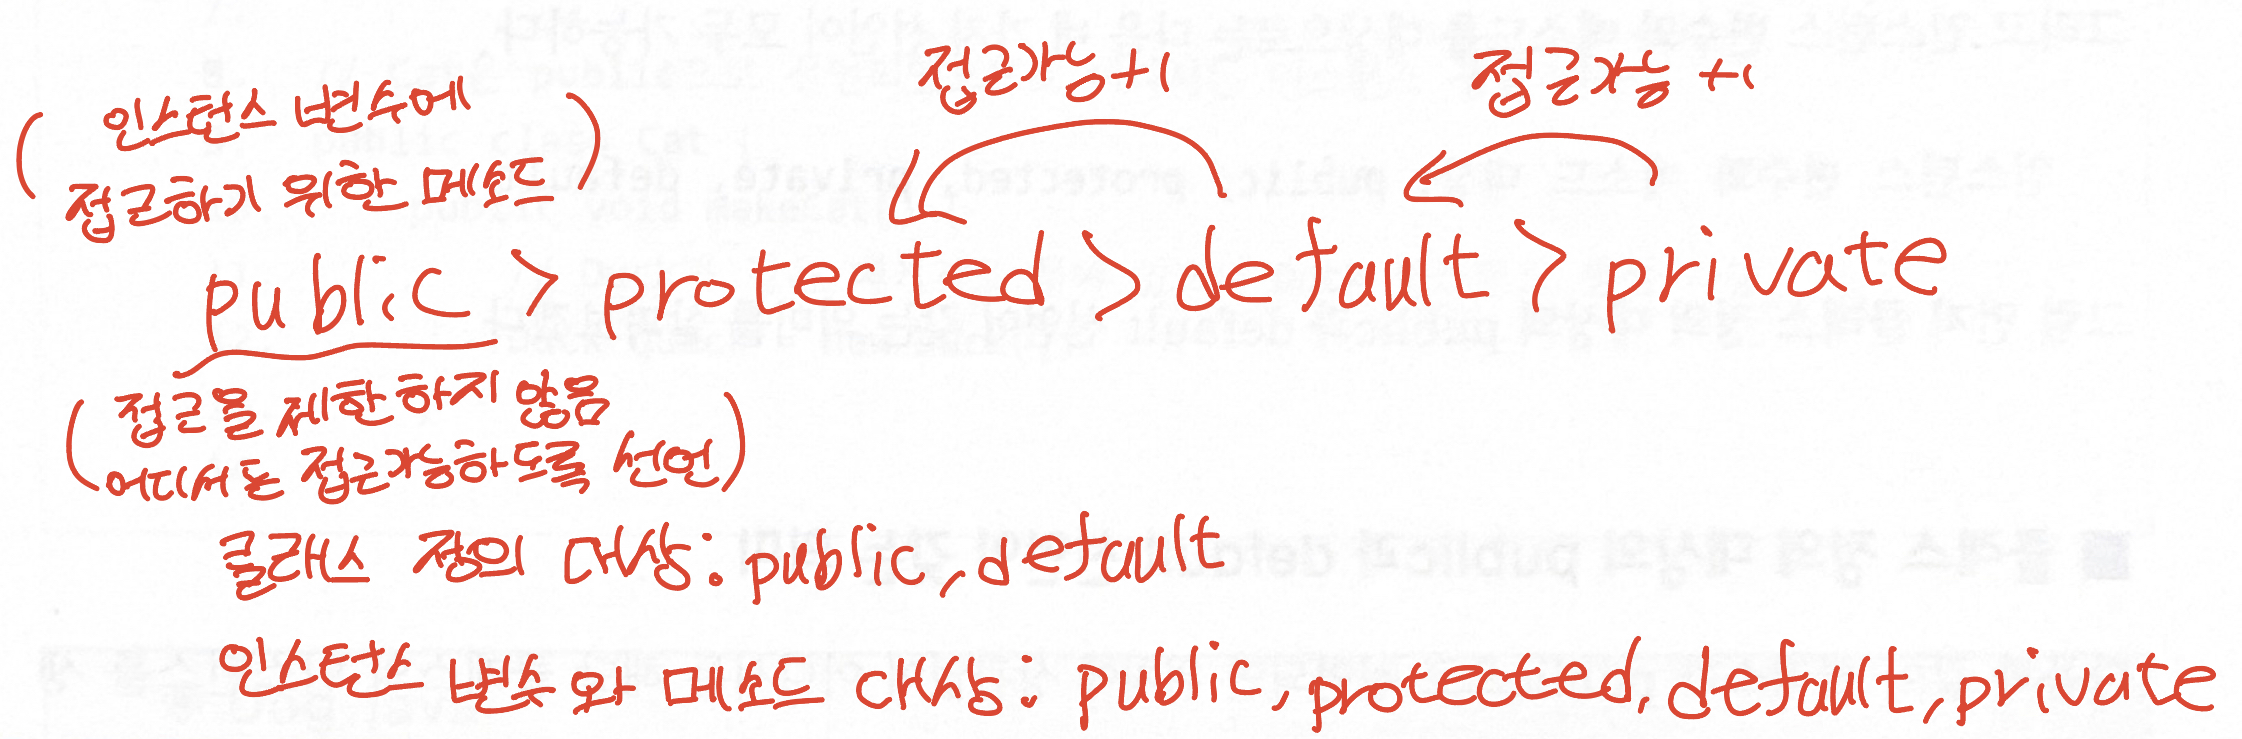 접근가능+1 접근가능 +1
(인스턴스 변수에
접근하기 위한 메소드)
public > protected > default > private
(접근을 제한하지 않음
어디서든 접근가능하도록 선언)
클래스 정의 대상: public, default
인스턴스 변수와 메소드 대상: public, protected, default, private